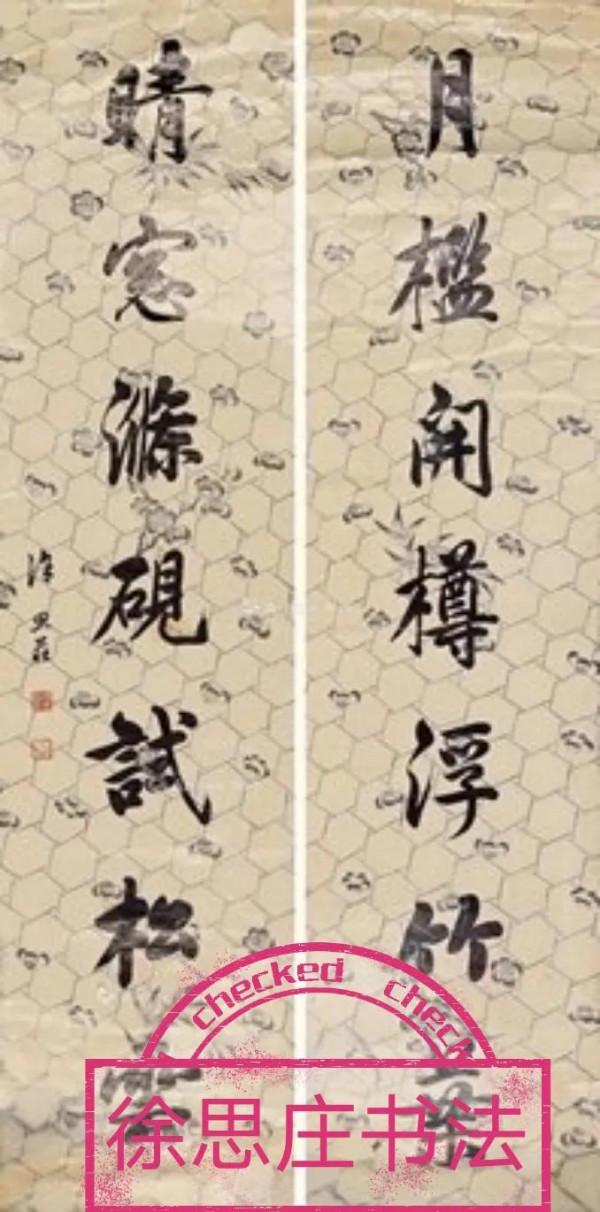 月檻開樽浮竹
晴窓滌硯試松
徐思莊
checked check
徐思庄书法